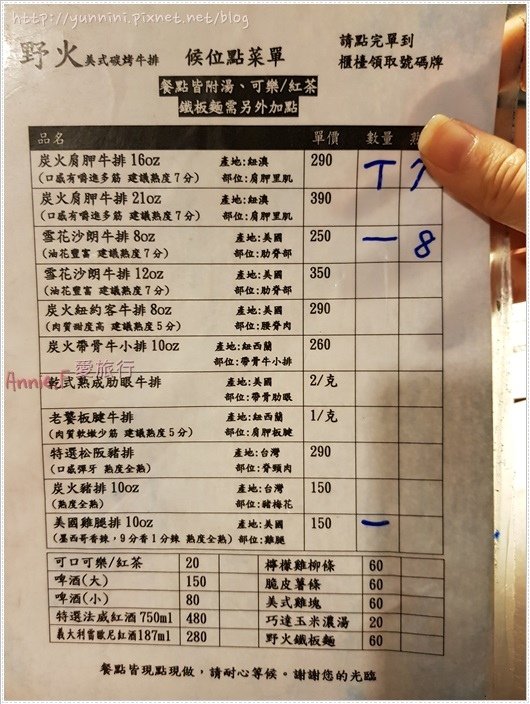 http://yunnini.pixnet.net/blog
野火美式碳烤牛排 候位點菜單 請點完單到
櫃檯領取號碼牌
餐點皆附湯、可樂/紅茶
鐵板麵需另外加點
品名 單價 數量
炭火肩胛牛排16oz 產地:紐澳 290 T 7
(口感有嚼進多筋 建議熟度7分) 部位:肩胛里肌
炭火肩胛牛排21oz 產地:紐澳 390
(口感有嚼進多筋 建議熟度7分) 部位:肩胛里肌
雪花沙朗牛排8oz 產地:美國 250 一 8
(油花豐富 建議熟度7分) 部位:肋脊部
雪花沙朗牛排12oz 產地:美國 350
(油花豐富 建議熟度7分) 部位:肋脊部
炭火紐約客牛排8oz 產地:美國 290
(肉質甜度高 建議熟度5分) 部位:腰脊肉
炭火帶骨牛小排10oz 產地:紐西蘭 260
部位:帶骨牛小排
Annie.F 愛旅行
乾式熟成肋眼牛排 產地:美國 2/克
部位:帶骨肋眼
老饕板腱牛排 產地:紐西蘭 1/克
(肉質軟嫩少筋 建議熟度5分) 部位:肩胛板腱
特選松阪豬排 產地:台灣 290
(口感彈牙 熟度全熟) 部位:脊頸肉
炭火豬排10oz 產地:台灣 150
(熟度全熟) 部位:豬梅花
美國雞腿排10oz 產地:美國 150 一
(墨西哥香辣,9分香1分辣 熟度全熟) 部位:雞腿
可口可樂/紅茶 20 檸檬雞柳條 60
啤酒(大) 150 脆皮薯條 60
啤酒(小) 80 美式雞塊 60
特選法威紅酒750ml 480 巧達玉米濃湯 20
義大利雷歐尼紅酒187ml 280 野火鐵板麵 60
餐點皆現點現做,請耐心等候。謝謝您的光臨